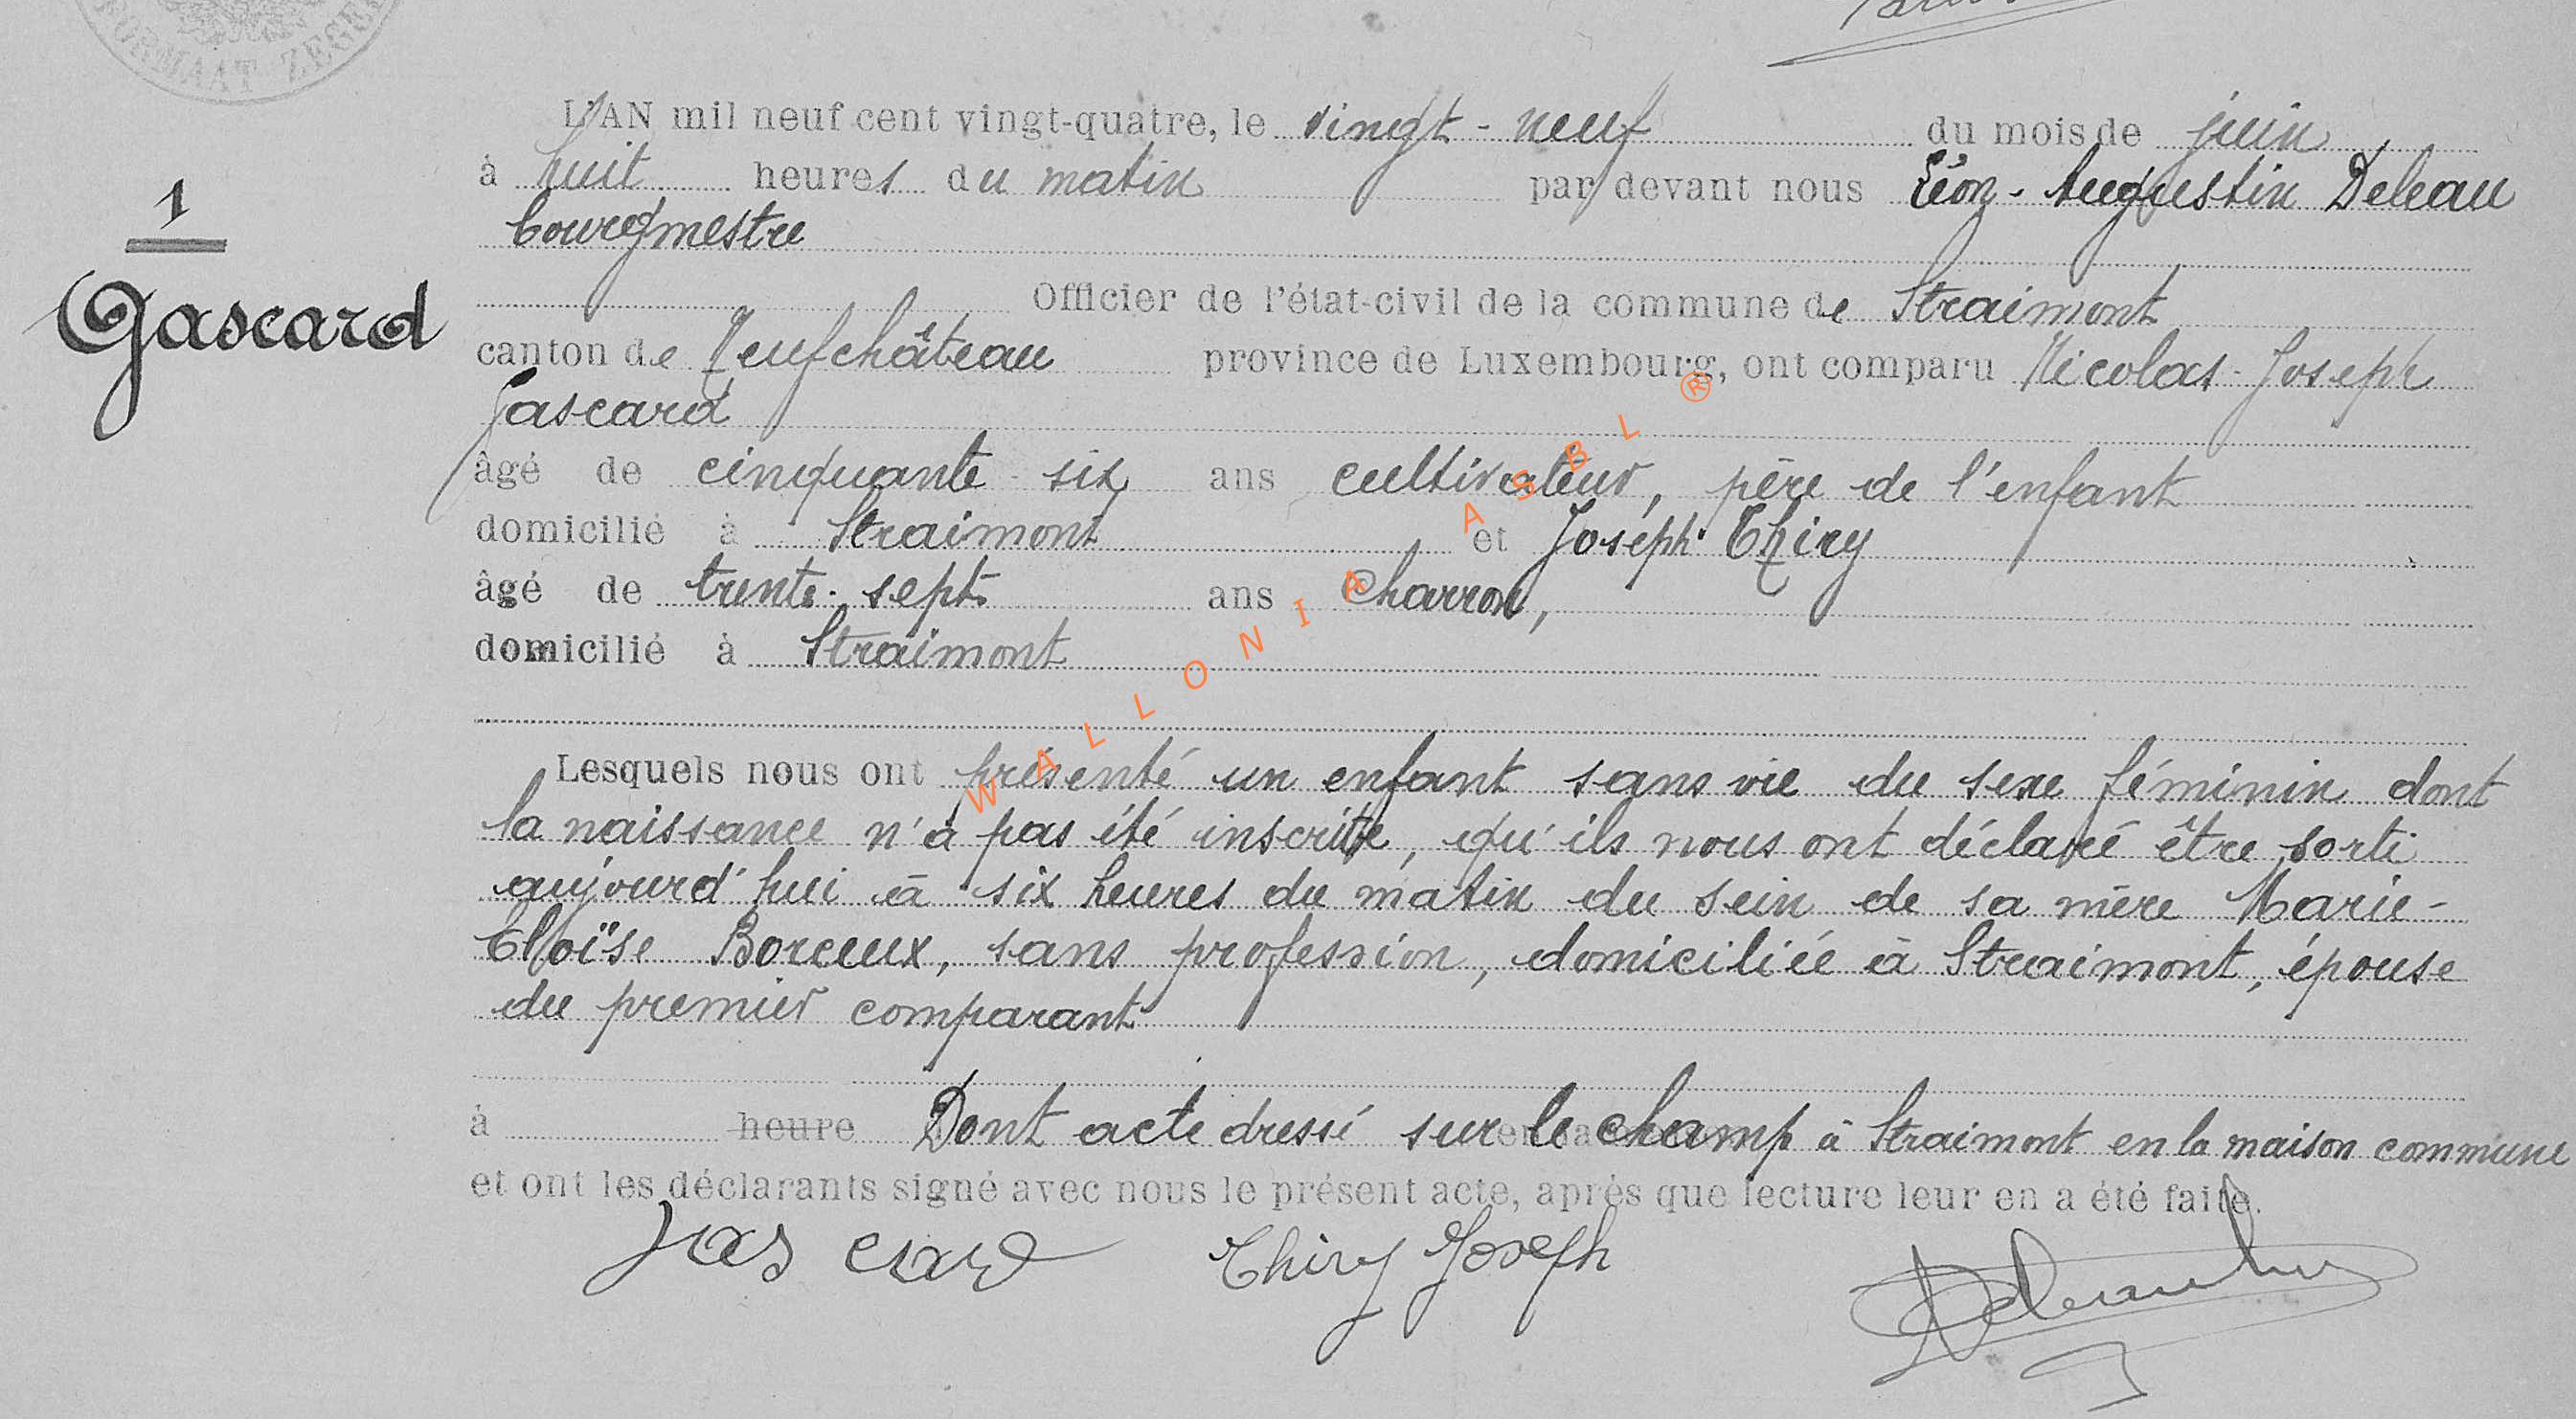 FORMAAT ZEGEL
L'AN mil neuf cent vingt-quatre, le vingt-neuf du mois de juin
à huit heures du matin par devant nous Léon-Augustin Deleau
bourgmestre
1
Officier de l'état-civil de la commune de Straimont
Gascard
canton de Neufchâteau province de Luxembourg, ont comparu Nicolas-Joseph
Gascard
âgé de cinquante-six ans cultivateur, père de l'enfant
domicilié à Straimont et Joseph Thiry
âgé de trente-sept ans charron,
domicilié à Straimont
WALLONIA ASBL ®
Lesquels nous ont présenté un enfant sans vie du sexe féminin dont
la naissance n'a pas été inscrite, qu'ils nous ont déclaré être sorti
aujourd'hui à six heures du matin du sein de sa mère Marie-
Eloïse Borceux, sans profession, domiciliée à Straimont, épouse
du premier comparant
à heure Dont acte dressé sur le champ à Straimont en la maison commune
et ont les déclarants signé avec nous le présent acte, après que lecture leur en a été faite.
Gascard Thiry Joseph